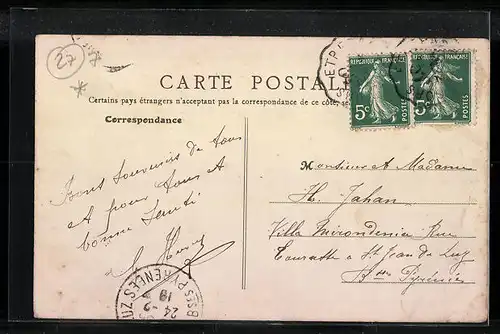 27
CARTE POSTALE
Certains pays étrangers n'acceptant pas la correspondance de ce côté,
Correspondance
REPUBLIQUE FRANÇAISE
5c
POSTES
REPUBLIQUE FRANÇAISE
5c
POSTES
Bons souvenirs de tous
et pour tous et
bonne Santé
Monsieur et Madame
H. Jahan
Villa Mirondenia Rue
St Jean de Luz
Bses Pyrénées
BSES PYRENEES
24 - 9